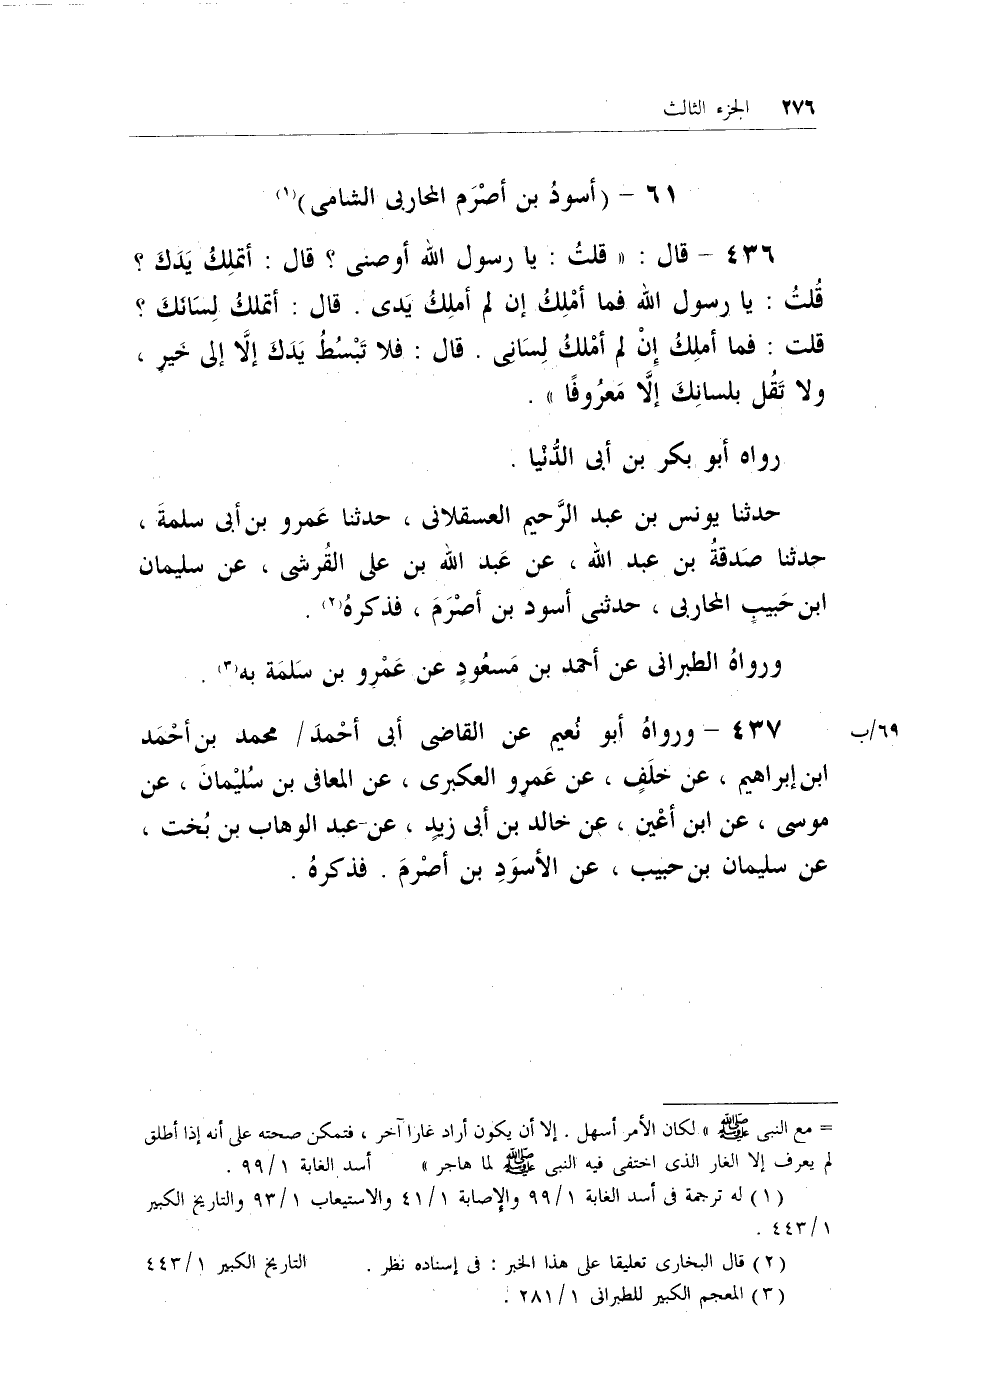 ٢٧٦ الجزء الثالث
٦١ – (أسودُ بن أصْرَم المحاربى الشامى)(١)
٤٣٦ – قال : « قلتُ : يا رسول الله أوصنى ؟ قال : أتملِكُ يَدَكَ ؟
قُلتُ : يا رسول الله فما أمْلِكُ إن لم أملِكُ يَدى . قال : أتملكُ لِسَانَكَ ؟
قلت : فما أملِكُ إِنْ لم أمْلكُ لِسَانِى . قال : فلا تَبْسُطُ يَدَكَ إلَّا إلى خَيرٍ ،
ولا تَقُل بلسانِكَ إلَّا مَعرُوفًا » .
رواه أبو بكر بن أبى الدُّنْيا .
حدثنا يونس بن عبد الرَّحيم العسقلانى ، حدثنا عَمرو بن أبى سلمةَ ،
حدثنا صَدقةُ بن عبد الله ، عن عَبد الله بن على القُرشى ، عن سليمان
ابن حَبيبٍ المحاربى ، حدثنى أسود بن أصْرَمَ ، فذكرهُ(٢) .
ورواهُ الطبرانى عن أحمد بن مَسعُودٍ عن عَمْرِو بن سَلَمَة به(٣) .
٤٣٧ – ورواهُ أبو نُعيم عن القاضى أبى أحْمدَ/ محمد بن أحْمَد ٦٩/ب
ابن إبراهيم ، عن خلَفٍ ، عن عَمرِو العكبرى ، عن المعافى بن سُليْمانَ ، عن
موسى ، عن ابن أعْين ، عن خالد بن أبى زيدٍ ، عن عبد الوهاب بن بُخت ،
عن سليمان بن حبيب ، عن الأسوَدِ بن أصْرمَ . فذكرهُ .
= مع النبى ﷺ » لكان الأمر أسهل . إلا أن يكون أراد غارا آخر ، فتمكن صحته على أنه إذا أطلق
لم يعرف إلا الغار الذى اختفى فيه النبى ﷺ لما هاجر » أسد الغابة ٩٩/١ .
(١) له ترجمة فى أسد الغابة ٩٩/١ والإصابة ٤١/١ والاستيعاب ٩٣/١ والتاريخ الكبير
٤٤٣/١ .
(٢) قال البخارى تعليقا على هذا الخبر : فى إسناده نظر . التاريخ الكبير ٤٤٣/١
(٣) المعجم الكبير للطبرانى ٢٨١/١ .